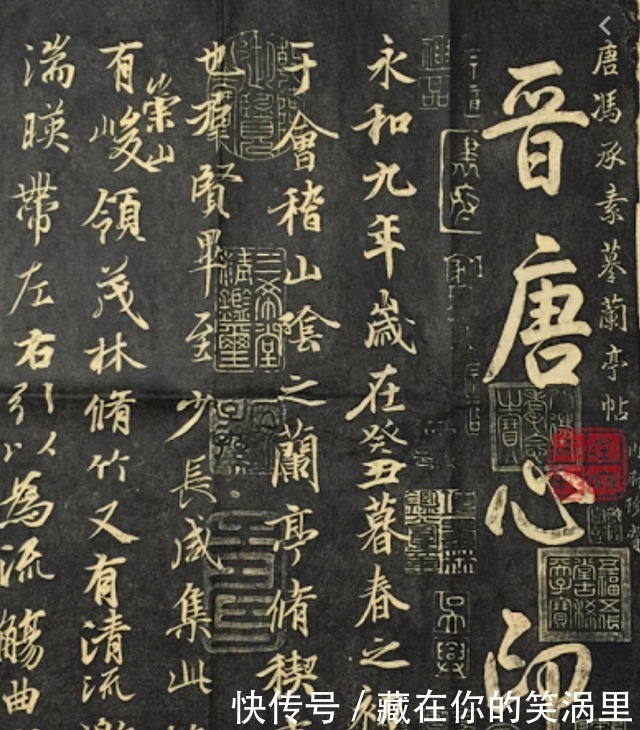 唐馮承素摹蘭亭帖
晉唐心印
永和九年歲在癸丑暮春之初
于會稽山陰之蘭亭脩禊
也群賢畢至少長咸集此
有崇山峻領茂林脩竹又有清流激
湍暎帶左右引以為流觴曲
三希堂精鑑璽
快传号 / 藏在你的笑涡里